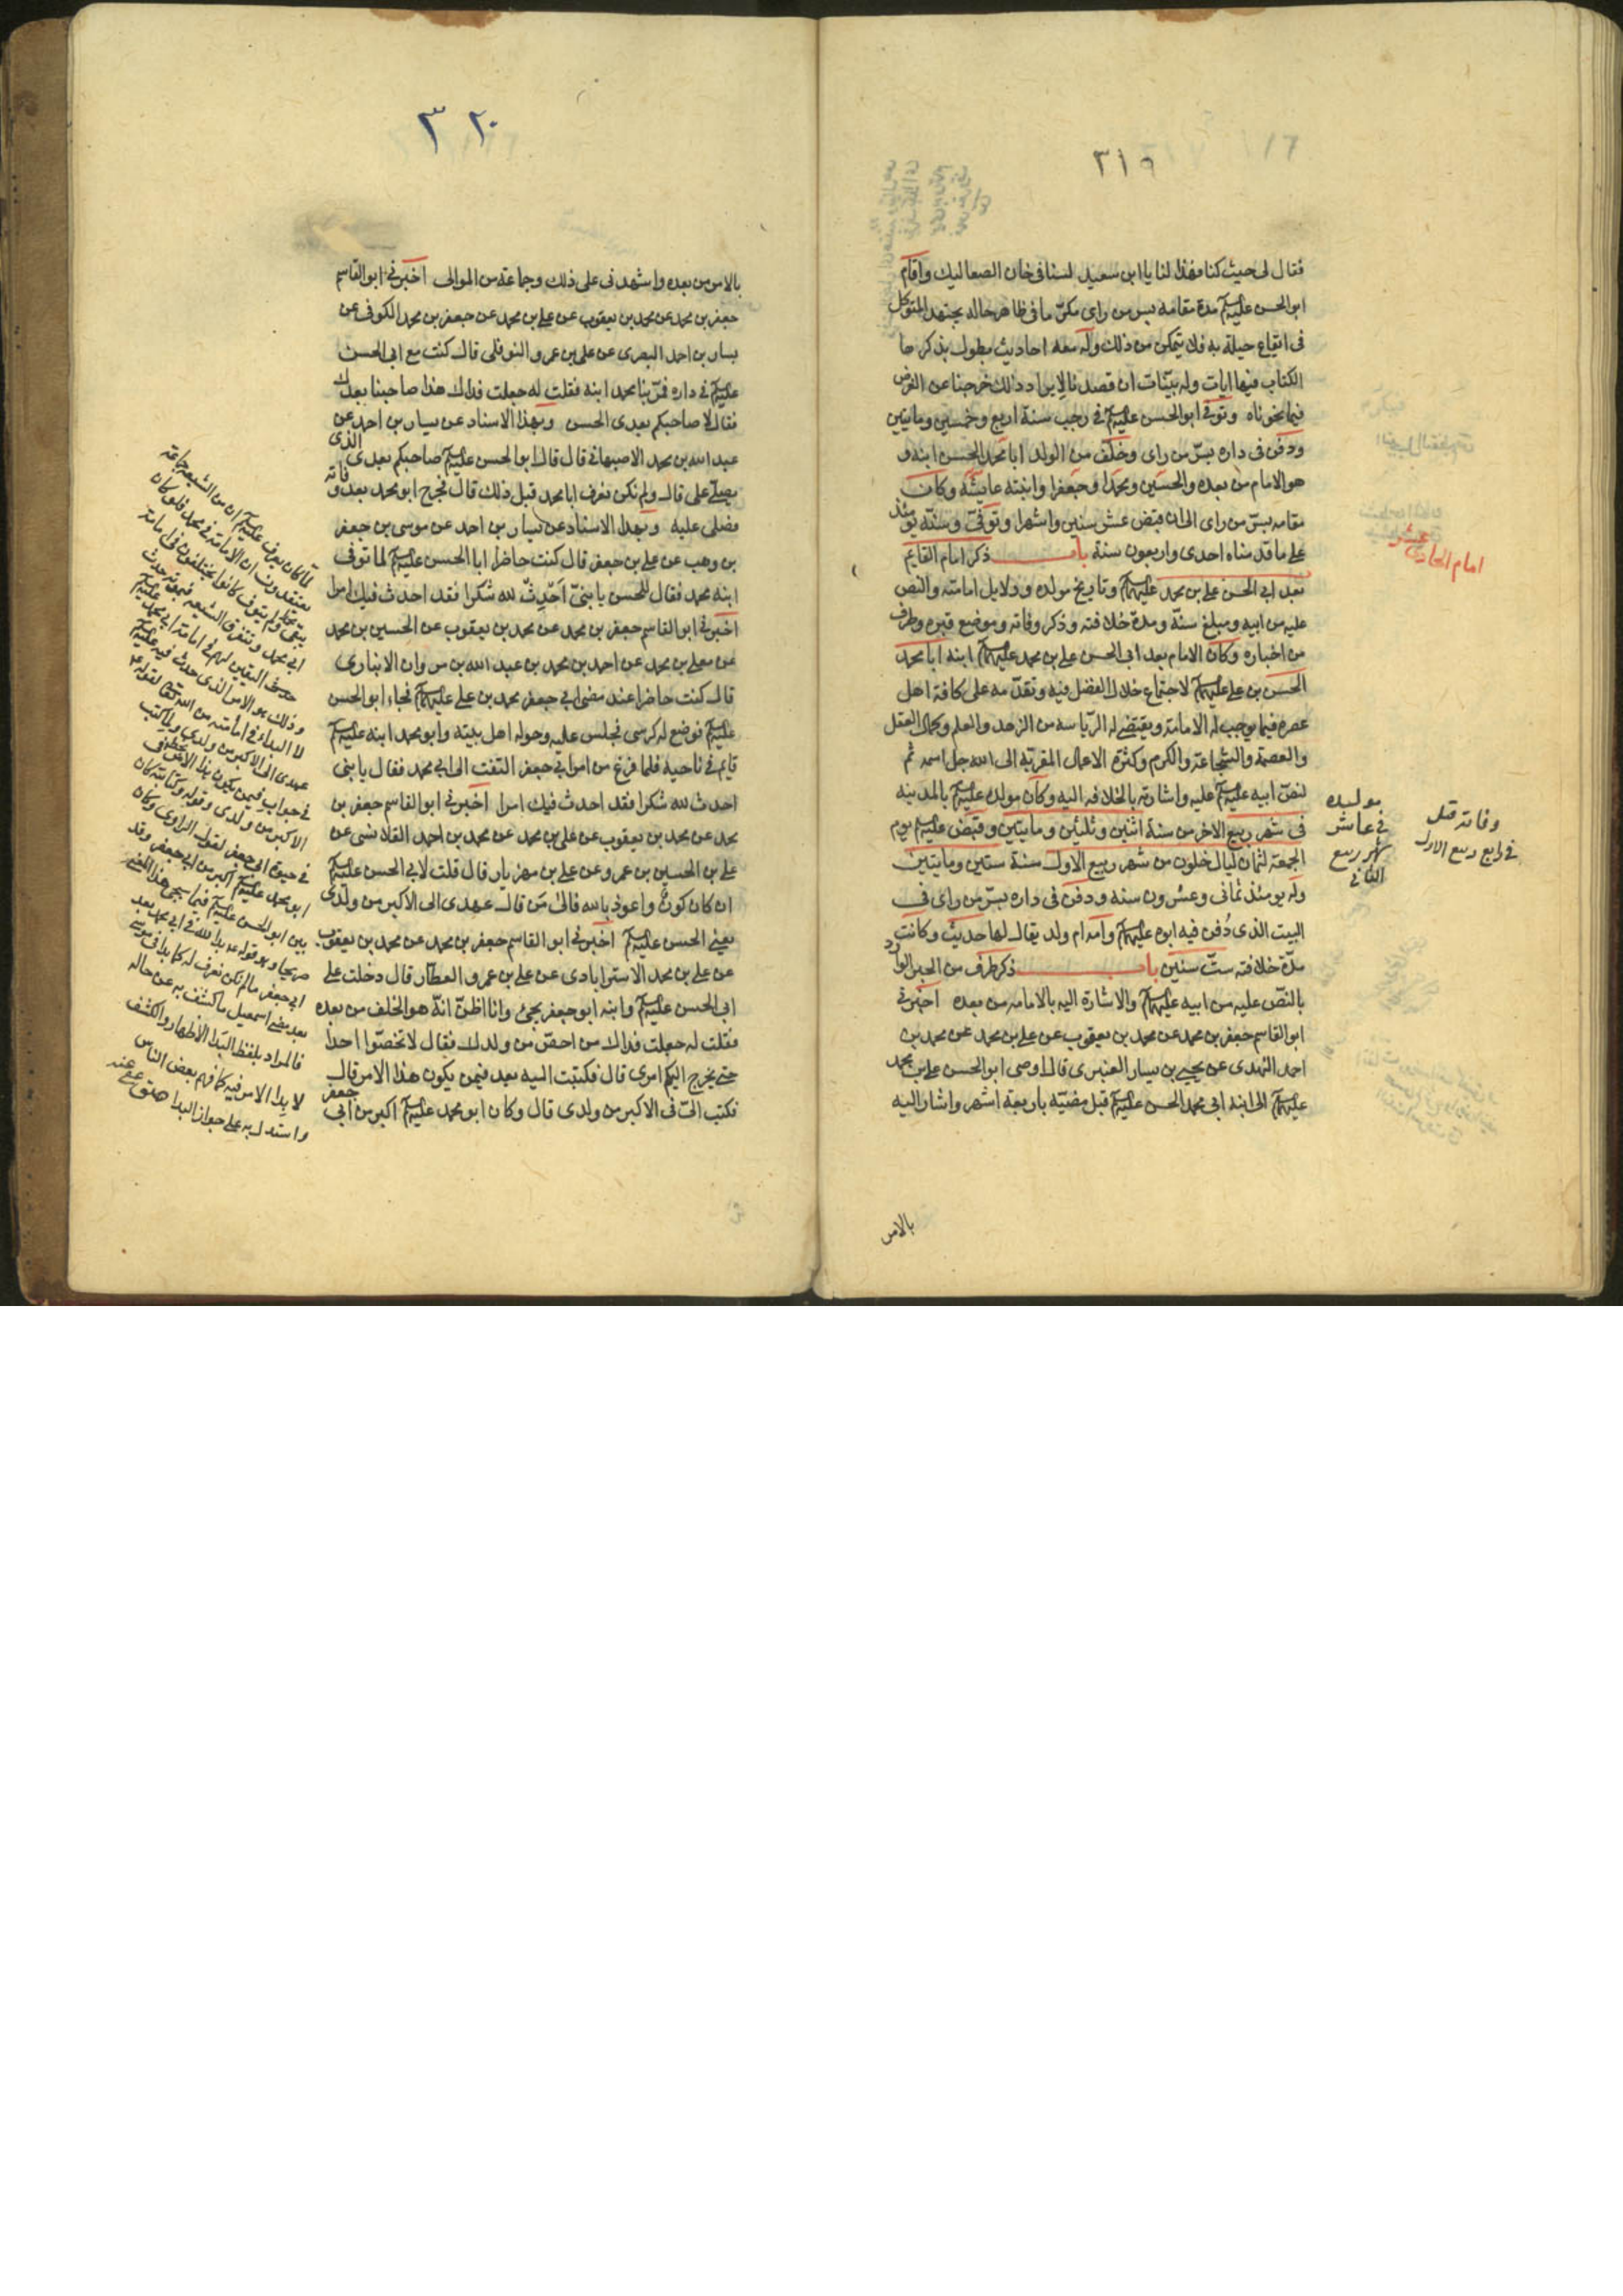 ٣١٩
فقال لى حيث كنا فهذا لنا يا ابن سعيد لسنا فى خان الصعاليك واقام
ابو الحسن عليه السلم مدة مقامه بسر من راى مكرّما فى ظاهر حاله يجتهد المتوكل
فى ايقاع حيلة به فلا يتمكن من ذلك وله معه احاديث يطول بذكرها
الكتاب فيها ايات له وبيّنات ان قصدنا لايراد ذلك خرجنا عن الغرض
فيما نحوناه وتوفى ابو الحسن عليه السلم فى رجب سنة اربع وخمسين وماتين
ودفن فى داره بسرّ من راى وخلّف من الولد ابا محمد الحسن ابنه و
هو الامام من بعده والحسين ومحمدا وجعفرا وابنته عايشة وكان
مقامه بسرّ من راى الى ان قبض عشر سنين واشهرا وتوفّى وسنّه يومئذ
على ما قدمناه احدى واربعون سنة باب ذكر امام القايم
بعد ابى الحسن على بن محمد عليهم السلم وتاريخ مولده ودلايل امامته والنص
عليه من ابيه ومبلغ سنّة ومدة خلافته وذكر وفاته وموضع قبره وطرف
من اخباره وكان الامام بعد ابى الحسن على بن محمد عليهم السلم ابنه ابا محمد
الحسن بن على عليهم السلم لاجتماع خلال الفضل فيه وتقدّمه على كافة اهل
عصره فيما يوجب له الامامة ويقتضى له الرّياسه من الزهد والعلم وكمال العقل
والعصمة والشجاعة والكرم وكثرة الاعمال المقربة الى الله جل اسمه ثم
لنصّ ابيه عليه السلم عليه واشارته بالخلافه اليه وكان مولده عليه السلم بالمدينه
فى شهر ربيع الاخر من سنة اثنين وثلثين وماتين وقبض عليه السلم يوم
الجمعة لثمان ليال خلون من شهر ربيع الاول سنة ستين وماتين
وله يومئذ ثمانى وعشرون سنه ودفن فى داره بسرّ من راى فى
البيت الذى دُفن فيه ابوه عليهم السلم وامه ام ولد يقال لها حديث وكانت
مدّة خلافته ستّ سنين باب ذكر طرف من الخبر الوارد
بالنّص عليه من ابيه عليهم السلم والاشارة اليه بالامامه من بعده اخبرنى
ابو القاسم جعفر بن محمد عن محمد بن يعقوب عن على بن محمد عن محمد بن
احمد النهدى عن يحيى بن يسار العنبرى قال اوصى ابو الحسن على بن محمد
عليهم السلم الى ابنه ابى محمد الحسن عليه السلم قبل مضيّه باربعة اشهر واشار اليه
بالامر
امام الحادى عشر
مولده
فى عاشر
شهر ربيع
الثانى
وفاته قتل
فى رابع ربيع الاول
٣٢٠
بالامر من بعده واشهدنى على ذلك وجماعة من الموالى اخبرنى ابو القاسم
جعفر بن محمد عن محمد بن يعقوب عن على بن محمد عن جعفر بن محمد الكوفى عن
يسار بن احمد البصرى عن على بن عمرو النوفلى قال كنت مع ابى الحسن
عليه السلم فى داره فمرّ بنا محمد ابنه فقلت له جعلت فداك هذا صاحبنا بعدك
فقال لا صاحبكم بعدى الحسن وبهذا الاسناد عن يسار بن احمد عن
عبد الله بن محمد الاصبهانى قال قال ابو الحسن عليه السلم صاحبكم بعدى الذى
يصلّى على قال ولم نكن نعرف ابا محمد قبل ذلك قال فخرج ابو محمد بعد وفاته
فصلى عليه وبهذا الاسناد عن يسار بن احمد عن موسى بن جعفر
بن وهب عن على بن جعفر قال كنت حاضرا ابا الحسن عليه السلم لما توفى
ابنه محمد فقال للحسن يا بنىّ اَحدِثْ لله شكرا فقد احدث فيك امرا
اخبرنى ابو القاسم جعفر بن محمد عن محمد بن يعقوب عن الحسين بن محمد
عن معلى بن محمد عن احمد بن محمد بن عبد الله بن مروان الانبارى
قال كنت حاضرا عند مضى ابى جعفر محمد بن على عليهم السلم فجاء ابو الحسن
عليه السلم فوضع له كرسى فجلس عليه وحوله اهل بيته وابو محمد ابنه عليه السلم
قايم فى ناحيه فلما فرغ من امر ابى جعفر التفت الى ابى محمد فقال يا بنى
احدث لله شكرا فقد احدث فيك امرا اخبرنى ابو القاسم جعفر بن
محمد عن محمد بن يعقوب عن على بن محمد عن محمد بن احمد القلانسى عن
على بن الحسين بن عمرو عن على بن مهزيار قال قلت لابى الحسن عليه السلم
ان كان كونٌ واعوذ بالله فالى مَن قال عهدى الى الاكبر من ولدى
يعنى الحسن عليه السلم اخبرنى ابو القاسم جعفر بن محمد عن محمد بن يعقوب
عن على بن محمد الاسترابادى عن على بن عمرو العطّار قال دخلت على
ابى الحسن عليه السلم وابنه ابو جعفر يحيى وانا اظنّ انّه هو الخلف من بعده
فقلت له جعلت فداك من اخصّ من ولدك فقال لا تخصّوا احدا
حتى يخرج اليكم امرى قال فكتبت اليه بعد فيمن يكون هذا الامر قال
فكتب الىّ فى الاكبر من ولدى قال وكان ابو محمد عليه السلم اكبر من ابى جعفر
لمّا كان يعرف عليه السلم ان من الشيعه جماعة
يعتقدون ان الامامة فى محمد فلو كان
ابى محمد وتتفرق الشيعه
وذلك هو الامر الذى حدث فيه عليه السلم
عهدى الى الاكبر من ولدى
فى جواب فيمن يكون هذا الامر
الاكبر من ولدى وقوله
فى حيوة ابى جعفر لقول الراوى وكان
ابو محمد عليه السلم اكبر من ابى جعفر وقد
بين ابو الحسن عليه السلم فيما
ابى جعفر ما لم نكن نعرف له كما بدا فى موسى
بعد مضى اسمعيل ما كشف به عن حاله
فالمراد بلفظ البدا الاظهار والكشف
لا بدا الامر فيه كما فهم بعض الناس
واستدل به على جواز البدا